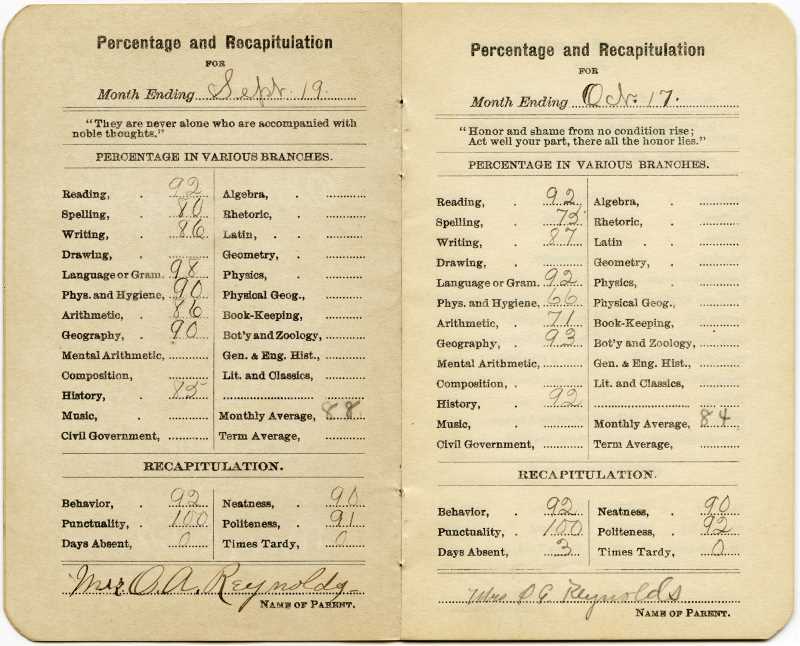 Percentage and Recapitulation
FOR
Month Ending Sept. 19.
"They are never alone who are accompanied with
noble thoughts."
PERCENTAGE IN VARIOUS BRANCHES.
Reading, . 92 Algebra, .
Spelling, . 80 Rhetoric, .
Writing, . 86 Latin, . .
Drawing, . Geometry, .
Language or Gram. 98 Physics, .
Phys. and Hygiene, 90 Physical Geog., .
Arithmetic, . 86 Book-Keeping, .
Geography, . 90 Bot'y and Zoology,
Mental Arithmetic, Gen. & Eng. Hist., .
Composition, Lit. and Classics,
History, . 85
Music, . Monthly Average, 88
Civil Government, Term Average,
RECAPITULATION.
Behavior, . 92 Neatness, . 90
Punctuality, . 100 Politeness, . 91
Days Absent, 0 Times Tardy, . 0
Mrs O. A. Reynolds
NAME OF PARENT.
Percentage and Recapitulation
FOR
Month Ending Oct. 17.
"Honor and shame from no condition rise;
Act well your part, there all the honor lies."
PERCENTAGE IN VARIOUS BRANCHES.
Reading, . 92 Algebra, .
Spelling, . 75 Rhetoric, .
Writing, . 87 Latin . .
Drawing, . Geometry, .
Language or Gram. 92 Physics, .
Phys. and Hygiene, 66 Physical Geog., .
Arithmetic, . 71 Book-Keeping, .
Geography, . 93 Bot'y and Zoology, .
Mental Arithmetic, Gen. & Eng. Hist., .
Composition, . Lit. and Classics,
History, . 92
Music, . Monthly Average, 84
Civil Government, Term Average,
RECAPITULATION.
Behavior, . 92 Neatness, . 90
Punctuality, . 100 Politeness, . 92
Days Absent, 3 Times Tardy, . 0
Mrs O A Reynolds
NAME OF PARENT.